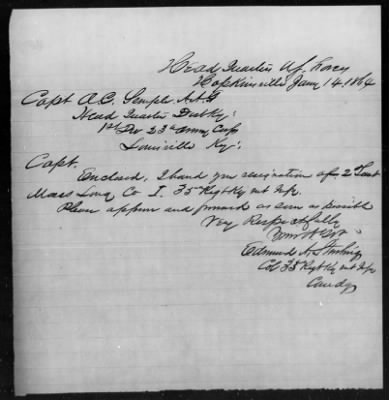 Head Quarters U.S. Forces
Hopkinsville Jany 14. 1864
Capt A.C. Semple A.A.G
Head Quarters Dist Ky:
1st Div 23d Army Corps
Louisville Ky:
Capt.
Enclosed, I hand you resignation of 2d Lieut
Long Co I. 35 Regt Ky mt Inf.
Please approve and forward as soon as possible
Very Respectfully
Your Obt Svt
Edmund A. Starling
Col 35 Regt Ky mt Inf
Comdg